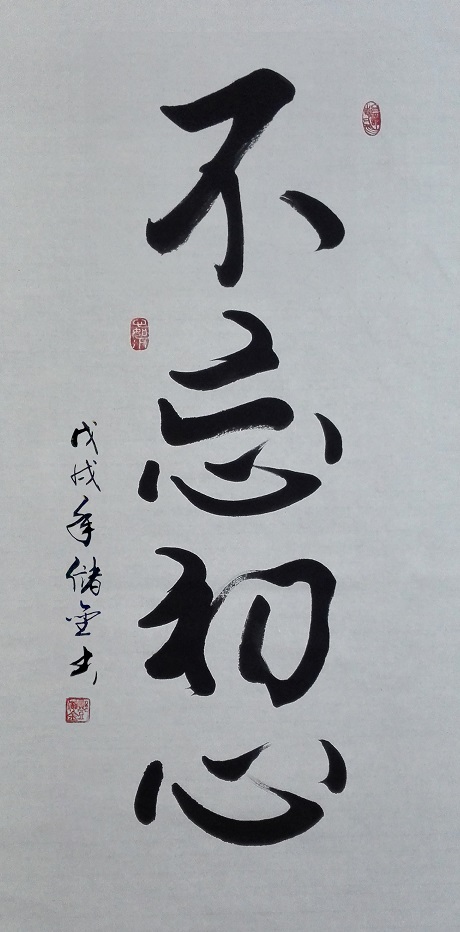 不忘初心
戊戌年储金书